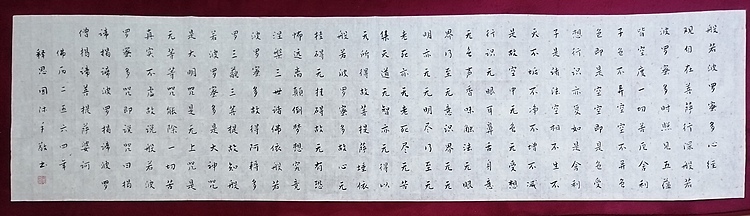 般若波羅蜜多心經
觀自在菩薩行深般若
波羅蜜多時照見五蘊
皆空度一切苦厄舍利
子色不異空空不異色
色即是空空即是色受
想行識亦復如是舍利
子是諸法空相不生不
滅不垢不淨不增不減
是故空中无色无受想
行識无眼耳鼻舌身意
无色聲香味觸法无眼
界乃至无意識界无无
明亦无无明盡乃至无
老死亦无老死盡无苦
集滅道无智亦无得以
无所得故菩提薩埵依
般若波羅蜜多故心无
挂礙无挂礙故无有恐
怖遠離顛倒夢想究竟
涅槃三世諸佛依般若
波羅蜜多故得阿耨多
羅三藐三菩提故知般
若波羅蜜多是大神咒
是大明咒是无上咒是
无等等咒能除一切苦
真實不虛故說般若波
羅蜜多咒即說咒曰揭
諦揭諦波羅揭諦波羅
僧揭諦菩提薩婆訶
佛历二五六四年
釋思圓沐手敬書